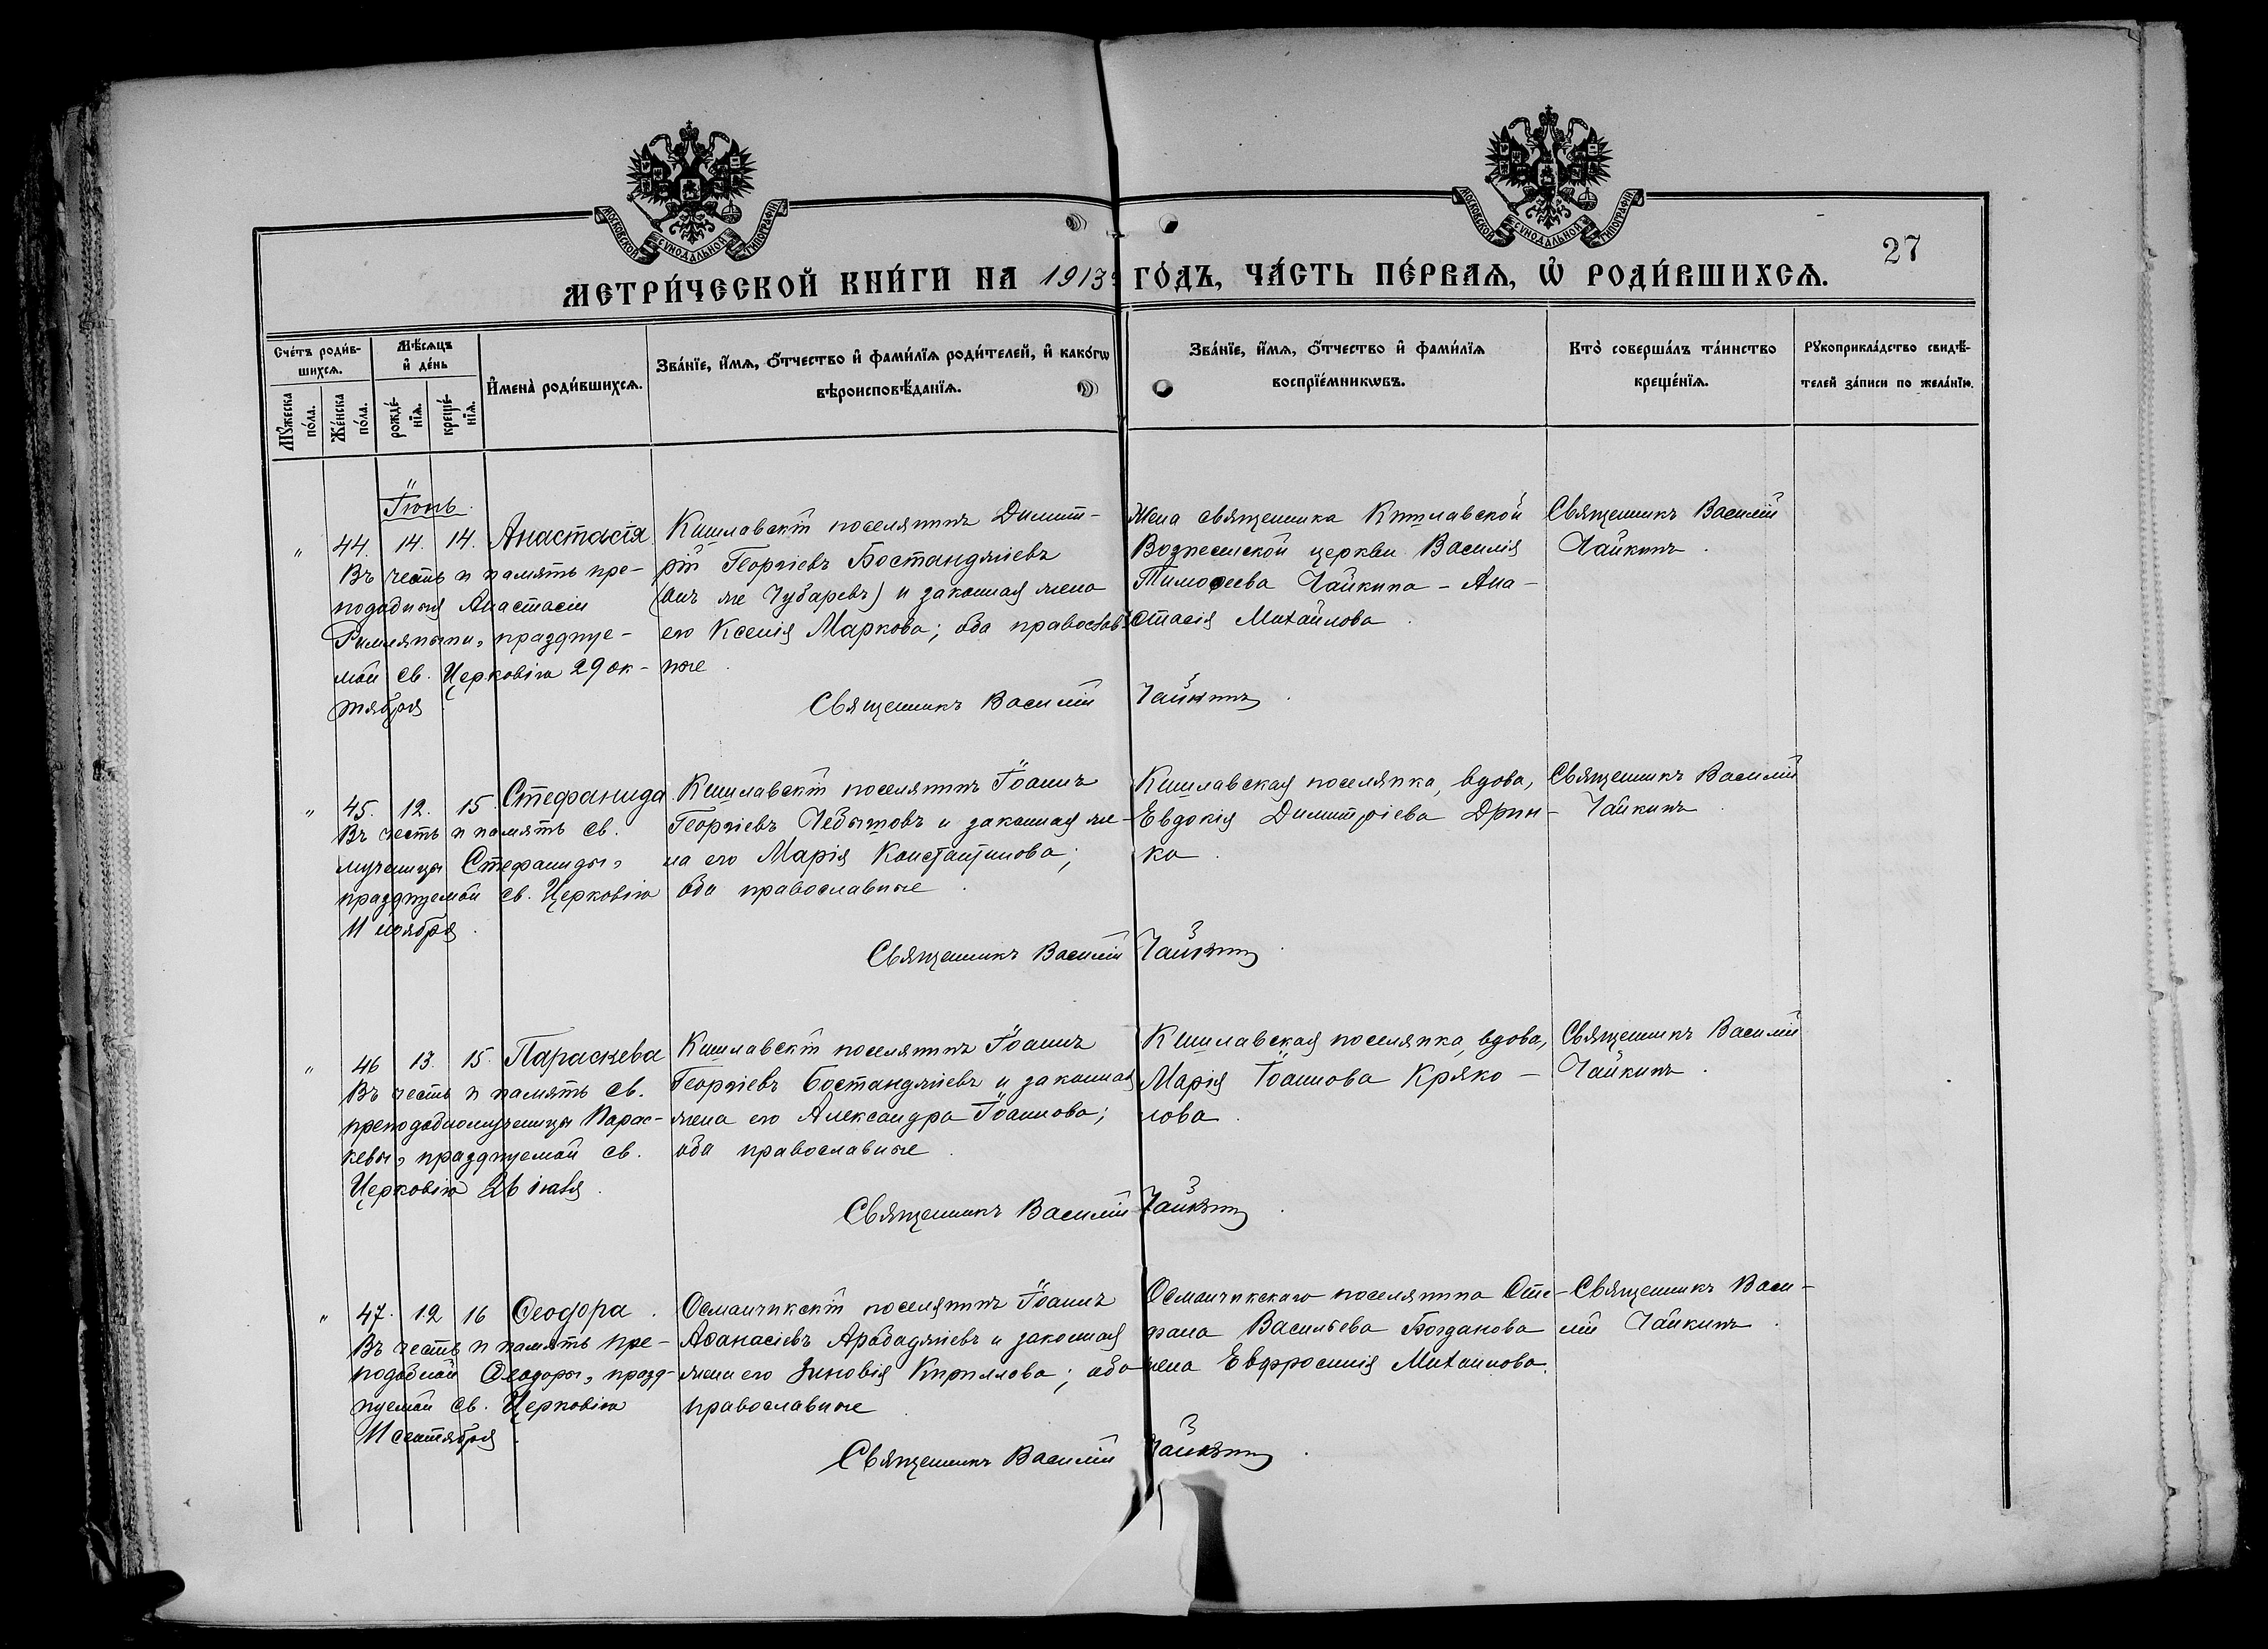 МОСКОВСКОЙ СѴНОДАЛЬНОЙ ТИПОГРАФІИ
МОСКОВСКОЙ СѴНОДАЛЬНОЙ ТИПОГРАФІИ
27
МЕТРИ́ЧЕСКОЙ КНИ́ГИ НА 1913 ГО́ДЪ, ЧА́СТЬ ПЕ́РВАѦ, Ѡ҆ РОДИ́ВШИХСѦ.
Сче́тъ роди́в-
шихсѧ.
Мѣ́сѧцъ
и҆ де́нь
Мꙋ́жеска
по́ла.
Же́нска
по́ла.
рожде́-
нїѧ.
креще́-
нїѧ.
И҆мена̀ роди́вшихсѧ.
Зва́нїе, и҆́мѧ, о҆́тчество и҆ фами́лїѧ роди́телей, и҆ како́гѡ
вѣроисповѣ́данїѧ.
Зва́нїе, и҆́мѧ, о҆́тчество и҆ фами́лїѧ
воспрїе́мникѡвъ.
Кто̀ соверша́лъ та́инство
креще́нїѧ.
Рꙋкоприкла́дство свидѣ́-
телей за́писи по жела́нїю.
Іюнь.
" 44. 14. 14. Анастасія
Въ честь и память пре-
подобныя Анастасіи
Римляныни, праздNуе-
мой св. Церковію 29 ок-
тября
Кишлавскій поселянинъ Димит-
рій Георгіевъ Бостанджіевъ
(онъ же Чубаревъ) и законная жена
его Ксенія Маркова; оба православ-
ные.
Жена священника Кишлавской
Вознесенской церкви Василія
Тимоѳеева Чайкина - Ана-
стасія Михайлова.
Священникъ Василій
Чайкинъ.
Священникъ Василій Чайкинъ.
" 45. 12. 15. Стефанида
Въ честь и память св.
мученицы Стефаниды,
празднуемой св. Церковію
11 ноября.
Кишлавскій поселянинъ Іоаннъ
Георгіевъ Чебытовъ и законная же-
на его Марія Константинова;
оба православные.
Кишлавская поселянка, вдова,
Евдокія Димитріева Дрин-
ка.
Священникъ Василій
Чайкинъ.
Священникъ Василій Чайкинъ.
" 46 13. 15. Параскева
Въ честь и память св.
преподобномученицы Парас-
кевы, празднуемой св.
Церковію 26 іюля.
Кишлавскій поселянинъ Іоаннъ
Георгіевъ Бостанджіевъ и законная
жена его Александра Іоаннова;
оба православные.
Кишлавская поселянка, вдова,
Марія Іоаннова Кряко-
лова.
Священникъ Василій
Чайкинъ.
Священникъ Василій Чайкинъ.
" 47. 12 16 Ѳеодора.
Въ честь и память пре-
подобной Ѳеодоры, празд-
нуемой св. Церковію
11 сентября.
Османчикскій поселянинъ Іоаннъ
Аѳанасіевъ Арабаджіевъ и законная
жена его Зиновія Кириллова; оба
православные.
Османчикскаго поселянина Сте-
фана Васильева Богданова
жена Евфросинія Михаилова.
Священникъ Васи-
лій Чайкинъ.
Священникъ Василій Чайкинъ.